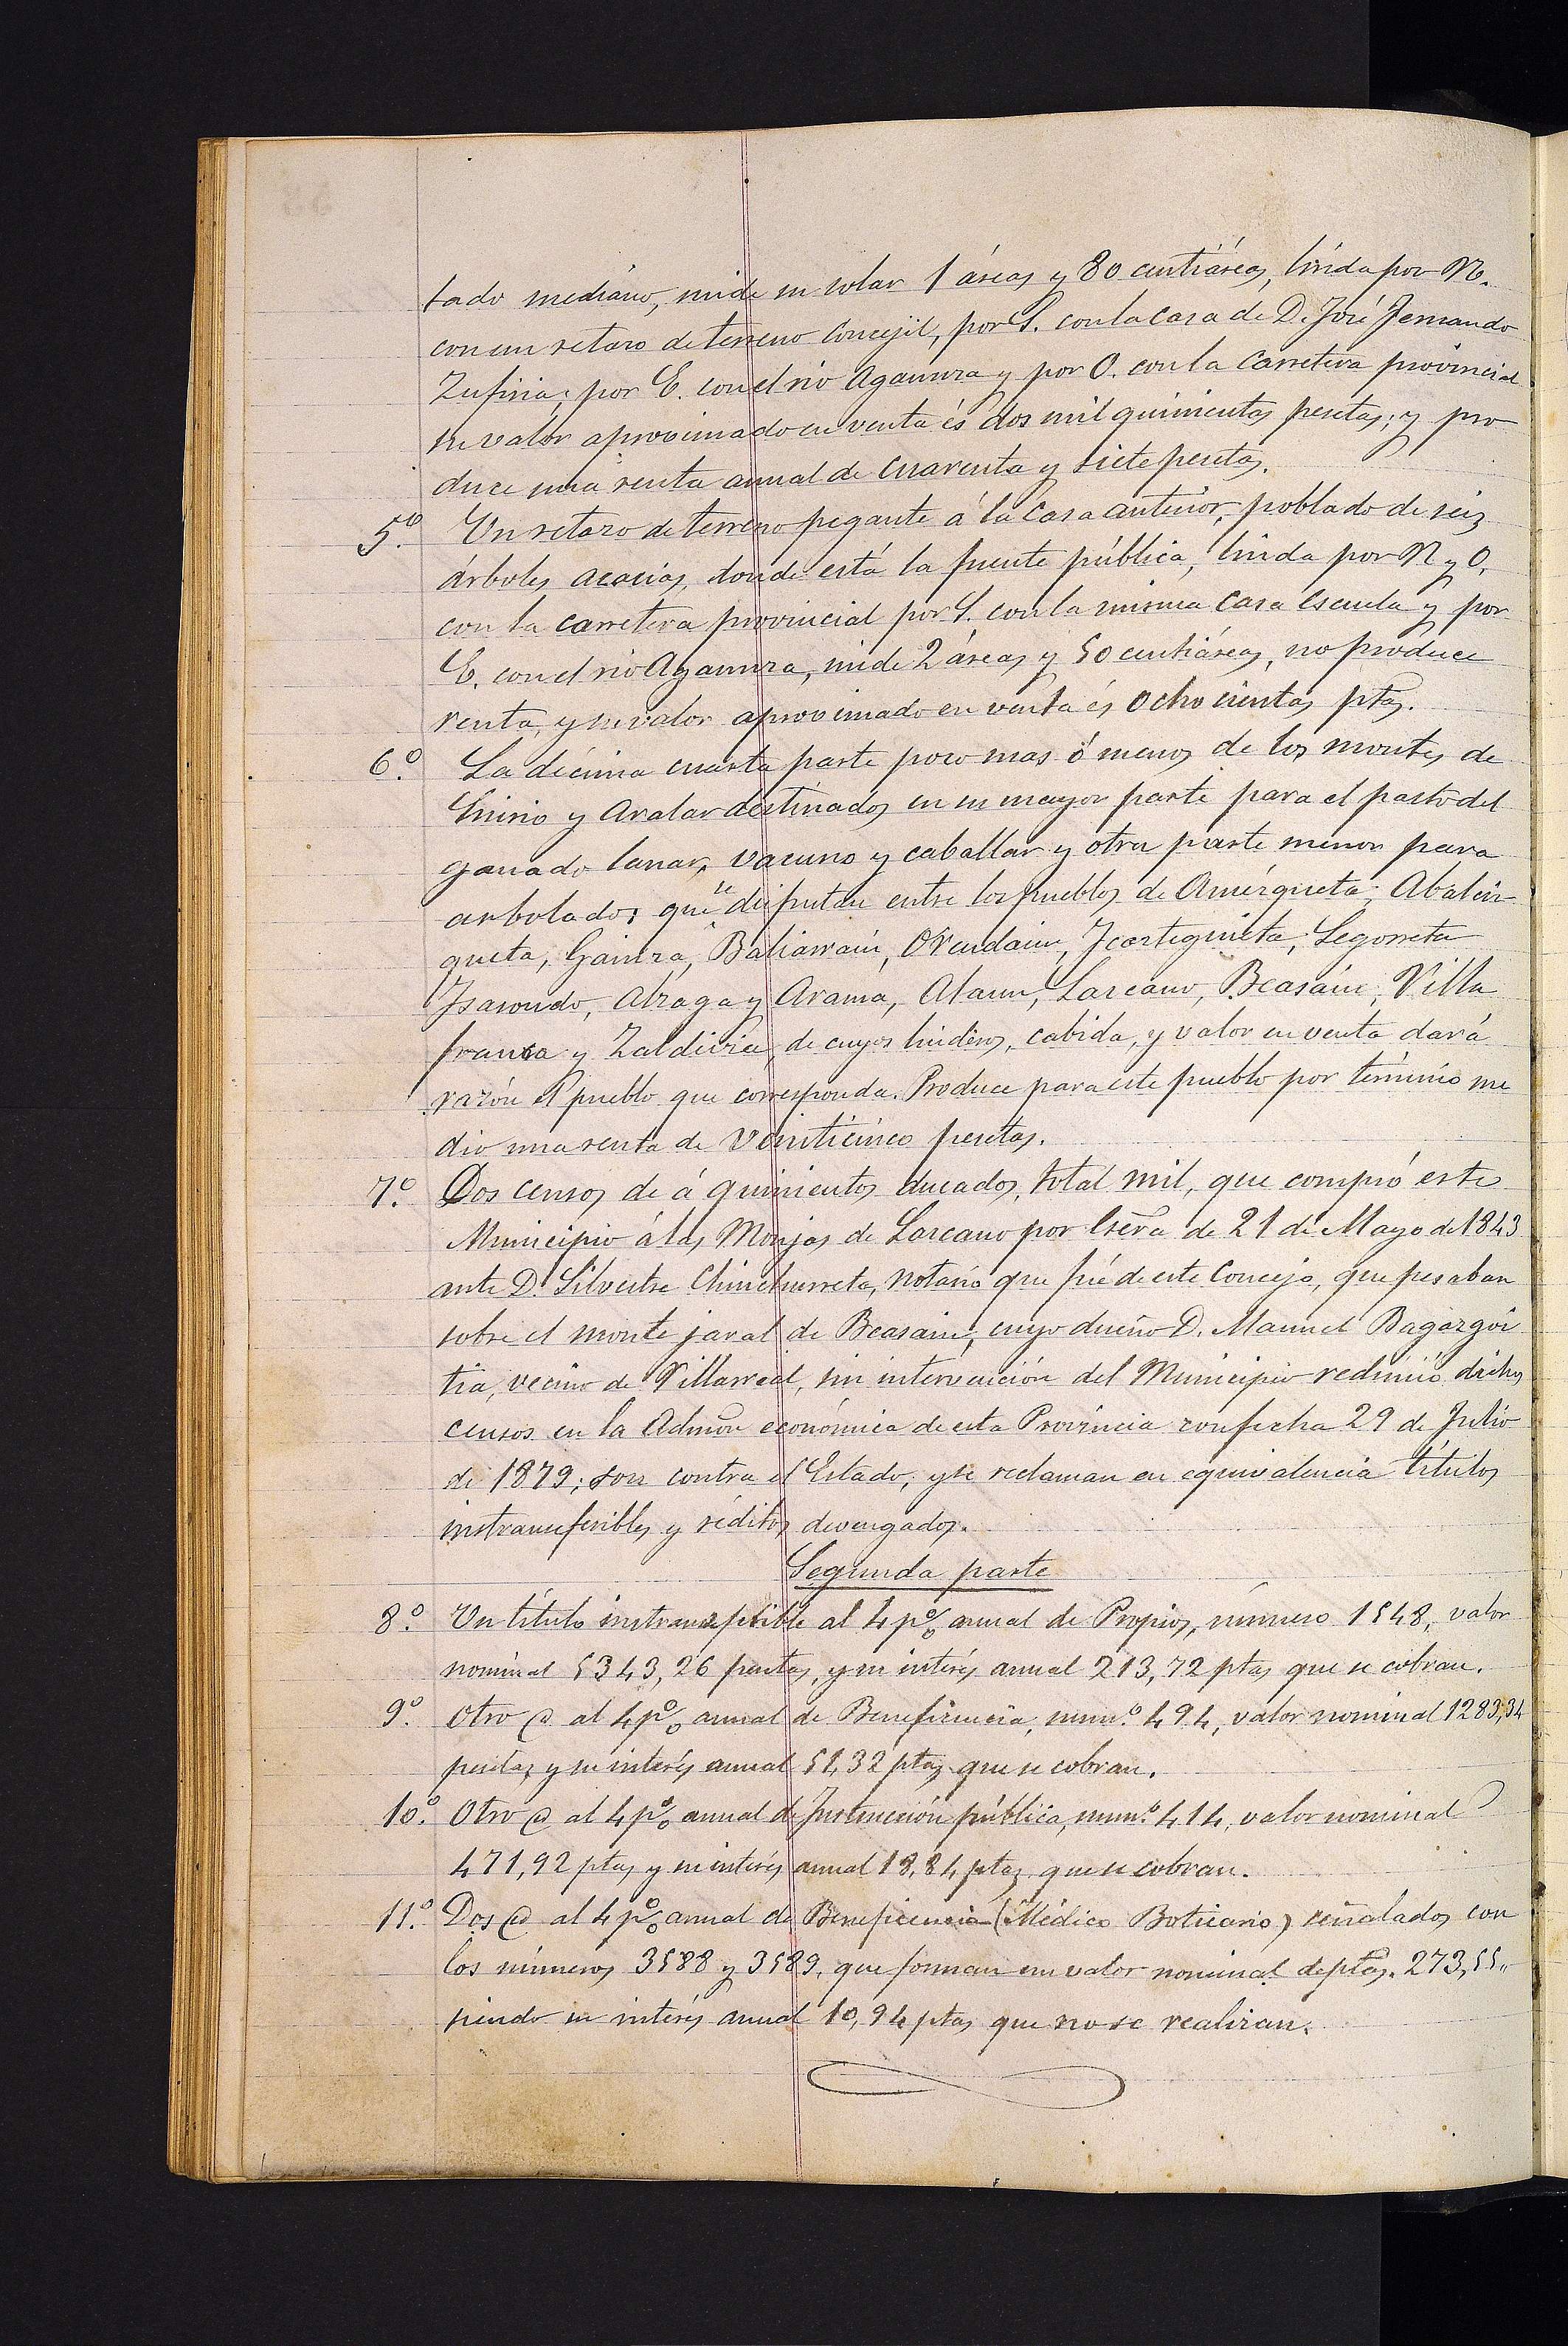 tado mediano, mide su solar 1 áreas y 80 centiáreas, linda por N.
con un retazo de terreno Concejil, por S. con la casa de D. José Fernando
Zufiria; por E. con el rio Agaunza y por O. con la Carretera provincial
su valor aproximado en venta és dos mil quinientas pesetas; y pro
duce una renta anual de cuarenta y siete pesetas.
5.º Un retazo de terreno pegante á la casa anterior, poblado de seiz
árboles acacias, donde está la fuente pública, linda por N y O.
con la carretera provincial por S. con la misma casa escuela y por
E. con el rio Agaunza, mide 2 áreas y 50 centiáreas, no produce
renta, y su valor aproximado en venta és ochocientas ptas.
6.º La décima cuarta parte poco mas ó menos de los montes de
Enirio y Aralar destinados en su mayor parte para el pasto del
ganado lanar, vacuno y caballar y otra parte menor para
arbolados que se disfrutan entre los pueblos de Amézqueta, Abalcis-
queta, Gainza, Baliarrain, Orendain, Icazteguieta, Legorreta
Isasondo, Alzaga y Arama, Ataun, Lazcano, Beasain, Villa
franca y Zaldivia, de cuyos linderos, cabida, y valor en venta dará
razón el pueblo que corresponda. Produce para este pueblo por término me
dio una renta de veinticinco pesetas.
7.º Dos censos de á quinientos ducados, total mil, que compró este
Municipio á las Monjas de Lazcano por Escra de 21 de Mayo de 1843
ante D. Silvestre Chinchurreta, notario que fué de este Concejo, que pesaban
sobre el monte jaral de Beasain, cuyo dueño D. Manuel Bagazgoi
tia, vecino de Villarreal, sin intervención del Municipio redimió dichos
censos en la Admón económica de esta Provincia con fecha 29 de Julio
de 1879; son contra el Estado, y se reclaman en equivalencia títulos
instransferibles y réditos devengados.
Segunda parte
8.º Un título instransferible al 4 pº/o anual de Propios, número 1548, valor
nominal 5343,26 pesetas, y su interés anual 213,72 ptas que se cobran.
9.º Otro @ al 4 pº/o anual de Beneficencia, núm.º 494, valor nominal 1283,34
pesetas y su interés anual 51,32 ptas que se cobran.
10.º Otro @ al 4 pº/o anual de Instrucción pública, núm.º 414, valor nominal
471,92 ptas y su interés anual 18,84 ptas que se cobran.
11.º Dos @ al 4 pº/o anual de Beneficencia (Médico Boticario) señalados con
los números 3588 y 3589, que forman un valor nominal de ptas. 273,55,,
siendo su interés anual 10,94 ptas que no se realizan.